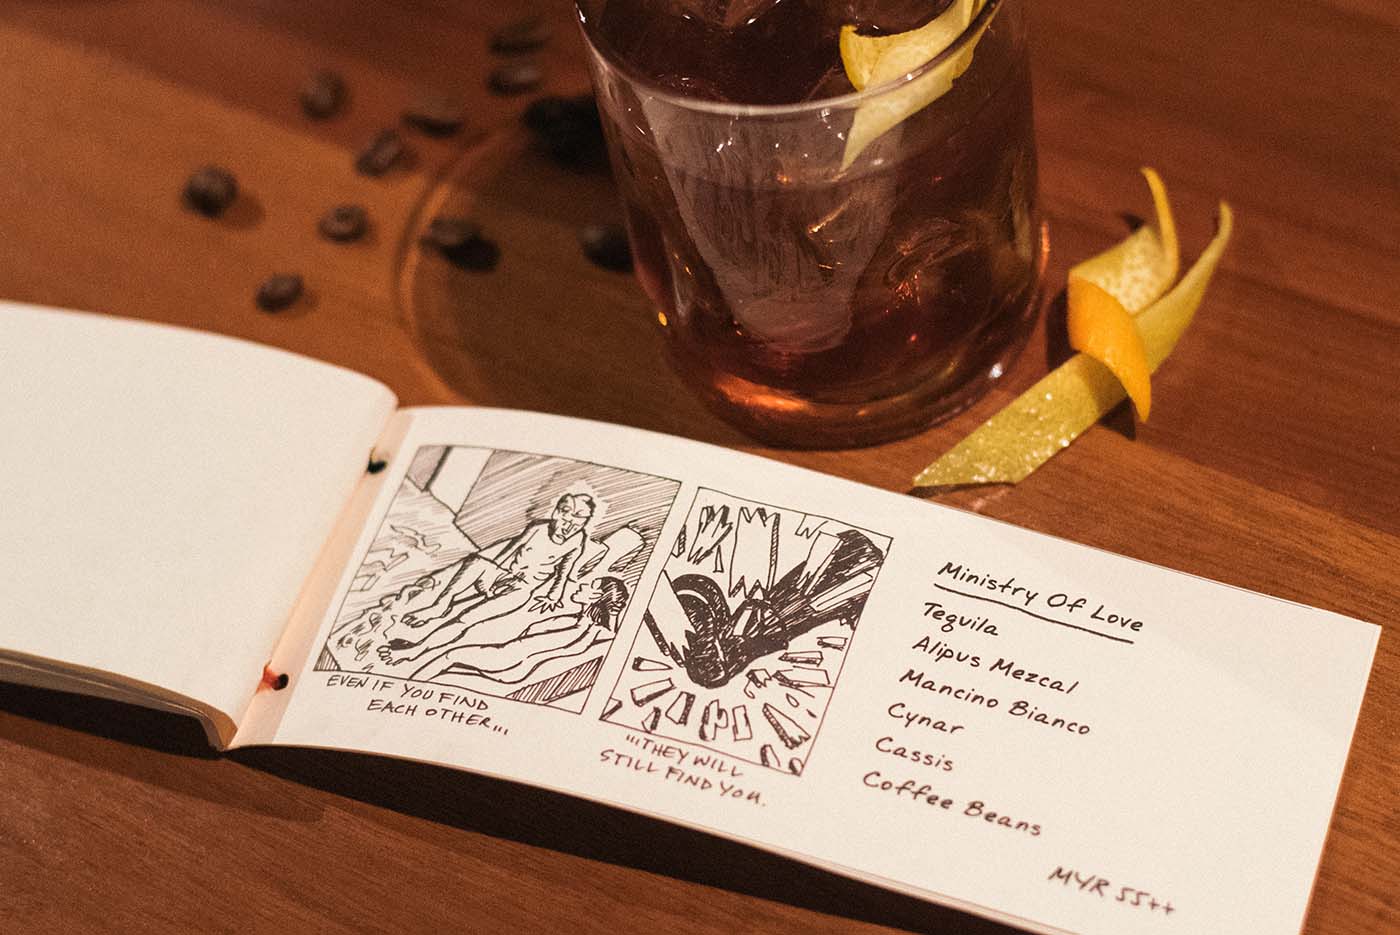 EVEN IF YOU FIND
EACH OTHER...
...THEY WILL
STILL FIND YOU.
Ministry Of Love
Tequila
Alipus Mezcal
Mancino Bianco
Cynar
Cassis
Coffee Beans
MYR 55++